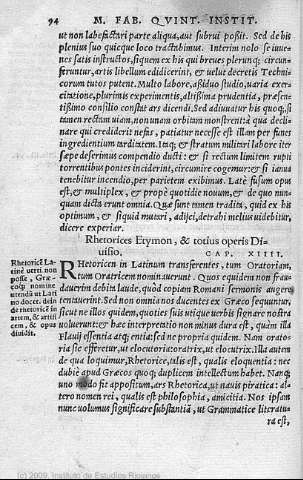 94 M. FAB. QVINT. INSTIT.
ut non labefactari parte aliqua, aut subrui possit. Sed de his
plenius suo quicque loco tractabimus. Interim nolo se iuue-
nes satis instructos, si quem ex his qui breues plerunq; circun-
feruntur, artis libellum edidicerint, & uelut decretis Technic-
corum tutos putent. Multo labore, assiduo studio, uaria exer-
citatione, plurimis experimentis, altissima prudentia, præsen-
tissimo consilio constat ars dicendi. Sed adiuuatur his quoq; si
tamen rectam uiam, non unam orbitam monstrent: à qua decli-
nare qui crediderit nefas, patiatur necesse est illam per funes
ingredientium tarditatem. Itaq; & stratum militari labore iter
sæpe deserimus compendio ducti: & si rectum limitem rupti
torrentibus pontes inciderint, circumire cogemur: & si ianua
tenebitur incendio, per parietem exibimus. Latè fusum opus
est, & multiplex, & propè quotidie nouum, & de quo nun-
quam dicta erunt omnia. Quæ sunt tamen tradita, quid ex his
optimum, & siquid mutari, adijci, detrahi melius uidebitur,
dicere experiar.
Rhetorices Etymon, & totius operis Di-
uisio. CAP. XIIII.
Rhetoricẽ La-
tinè uerti non
posse, Græ-
coq; nomine
utendũ ut Lati
no docet: dein
de rhetoricẽ in
artem, & artifi
cem, & opus
diuidit.
Rhetoricen in Latinum transferentes, tum Oratoriam,
tum Oratricem nominauerunt. Quos equidem non frau-
dauerim debita laude, quòd copiam Romani sermonis augere
tentauerint. Sed non omnia nos ducentes ex Græco sequuntur,
sicut ne illos quidem, quoties suis utique uerbis signare nostra
uoluerunt: & hæc interpretatio non minus dura est, quàm illa
Flauij essentia atq; entia: sed ne propria quidem. Nam orato-
ria sic effertur, ut elocutoria: oratrix, ut elocutrix. Illa autem
de qua loquimur, Rhetorice, talis est, qualis eloquentia: nec
dubiè apud Græcos quoq; duplicem intellectum habet. Nanq;
uno modo fit appositum, ars Rhetorica, ut nauis piratica: al-
tero nomen rei, qualis est philosophia, amicitia. Nos ipsam
nunc uolumus significare substãtiã, ut Grammatice literatu-
ra est,
(c) 2009, Instituto de Estudios Riojanos